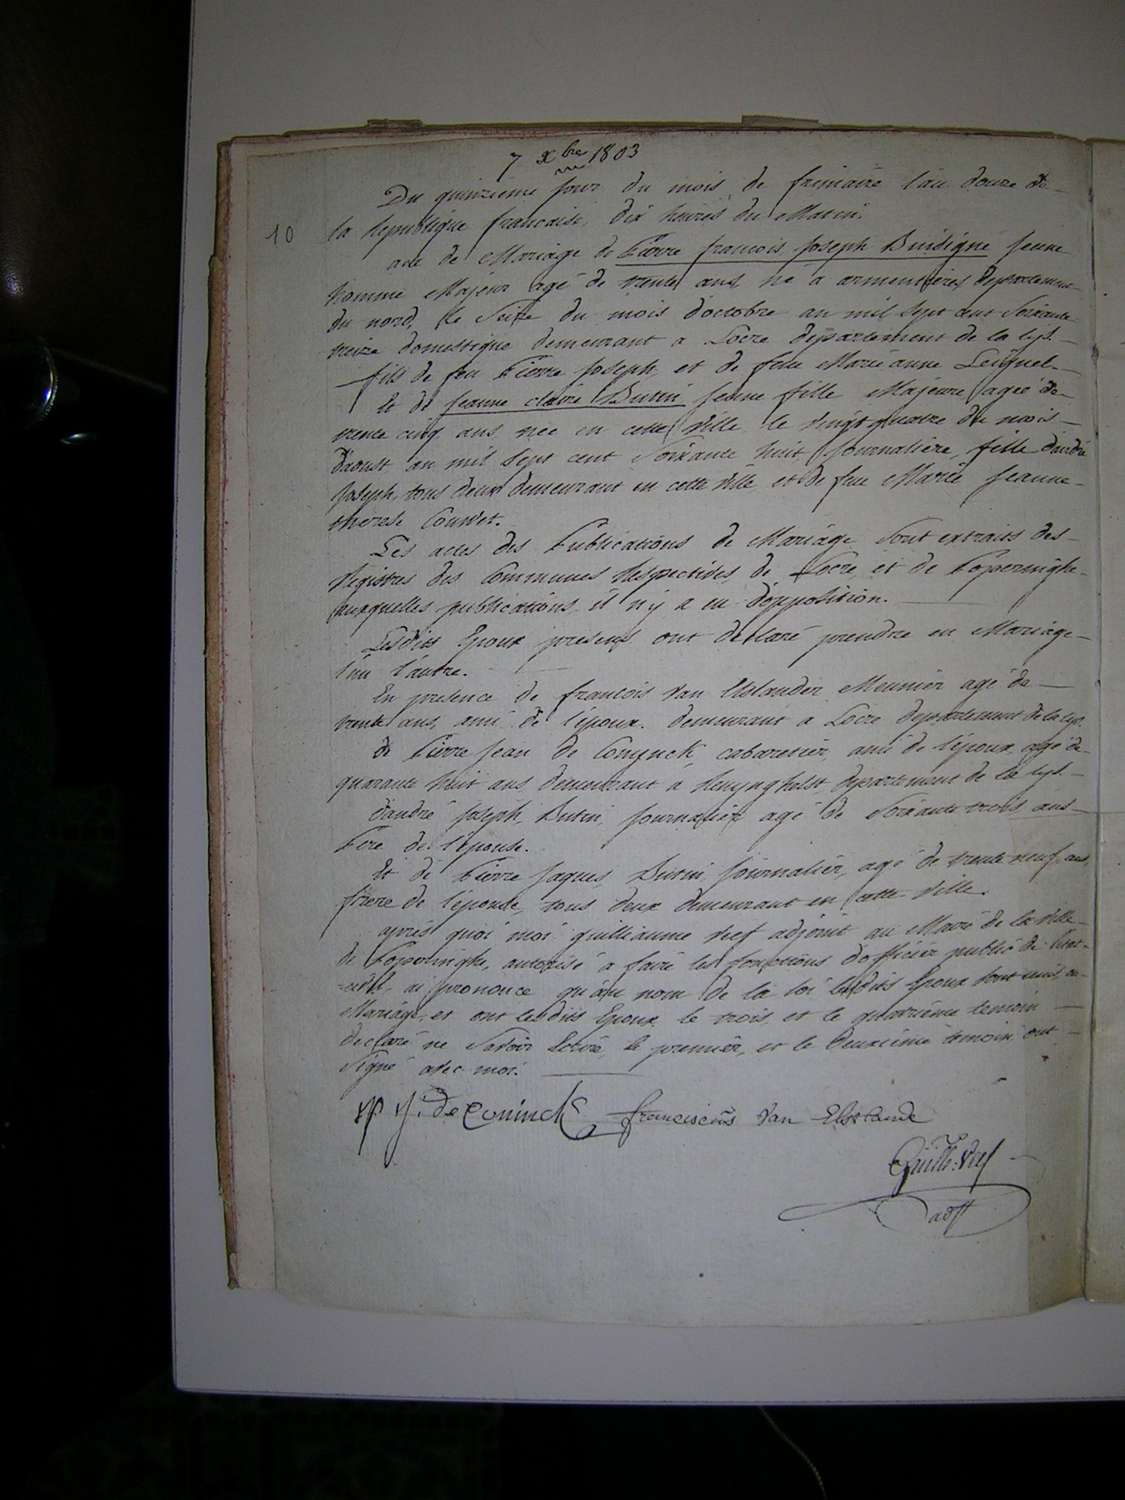 7 xbre 1803
Du quinzieme jour du mois de frimaire l'an douze de
10
la republique francaise, dix heures du Matin.
acte de Mariage de Pierre francois Joseph jeune
homme Majeur agé de trente ans né a armentieres departement
du nord, le Seize du mois d'octobre an mil Sept cent Soixante
treize domestique demeurant a Locre departement de la Lys.
fils de feu Pierre Joseph, et de feue Marieanne
Et de jeanne claire Butin jeune fille Majeure agée de
trente cinq ans née en cette Ville le vingt quatre du mois
d'aoust an mil Sept cent Soixante huit journaliere, fille d'andré
Joseph, tous deux demeurant en cette Ville et de feue Marie jeanne
therese
Les actes des Publications de Mariage Sont extraits des
Registres des Communes Respectives de Locre et de Poperinghe
auxquelles publications il n'y a eu d'opposition.
Lesdits Epoux presens ont declaré prendre en Mariage
l'un l'autre.
En presence de francois Van Meunier agé de
trente ans, ami de l'époux demeurant a Locre departement de la Lys.
de Pierre Jean de Conynck cabaretier, ami de l'époux, agé de
quarante huit ans demeurant à Renynghelst departement de la Lys.
d'andré Joseph Butin, journalier agé de Soixante trois ans
Pere de l'épouse.
Et de Pierre Jaques Butin journalier, agé de trente neuf ans
frere de l'épouse, tous deux demeurant en cette Ville.
après quoi moi guilliaume adjoint au Maire de la Ville
de Poperinghe, autorisé a faire les fonctions d'officier public de l'état
civil, ai prononcé qu'au nom de la loi lesdits Epoux Sont unis en
Mariage, et ont lesdits Epoux le trois et le quatrième temoin
declaré ne Savoir Ecrire, le premier, et le deuxieme temoin ont
Signé avec moi.
de Coninck franciscus Van Elstande
Guill:
adjt